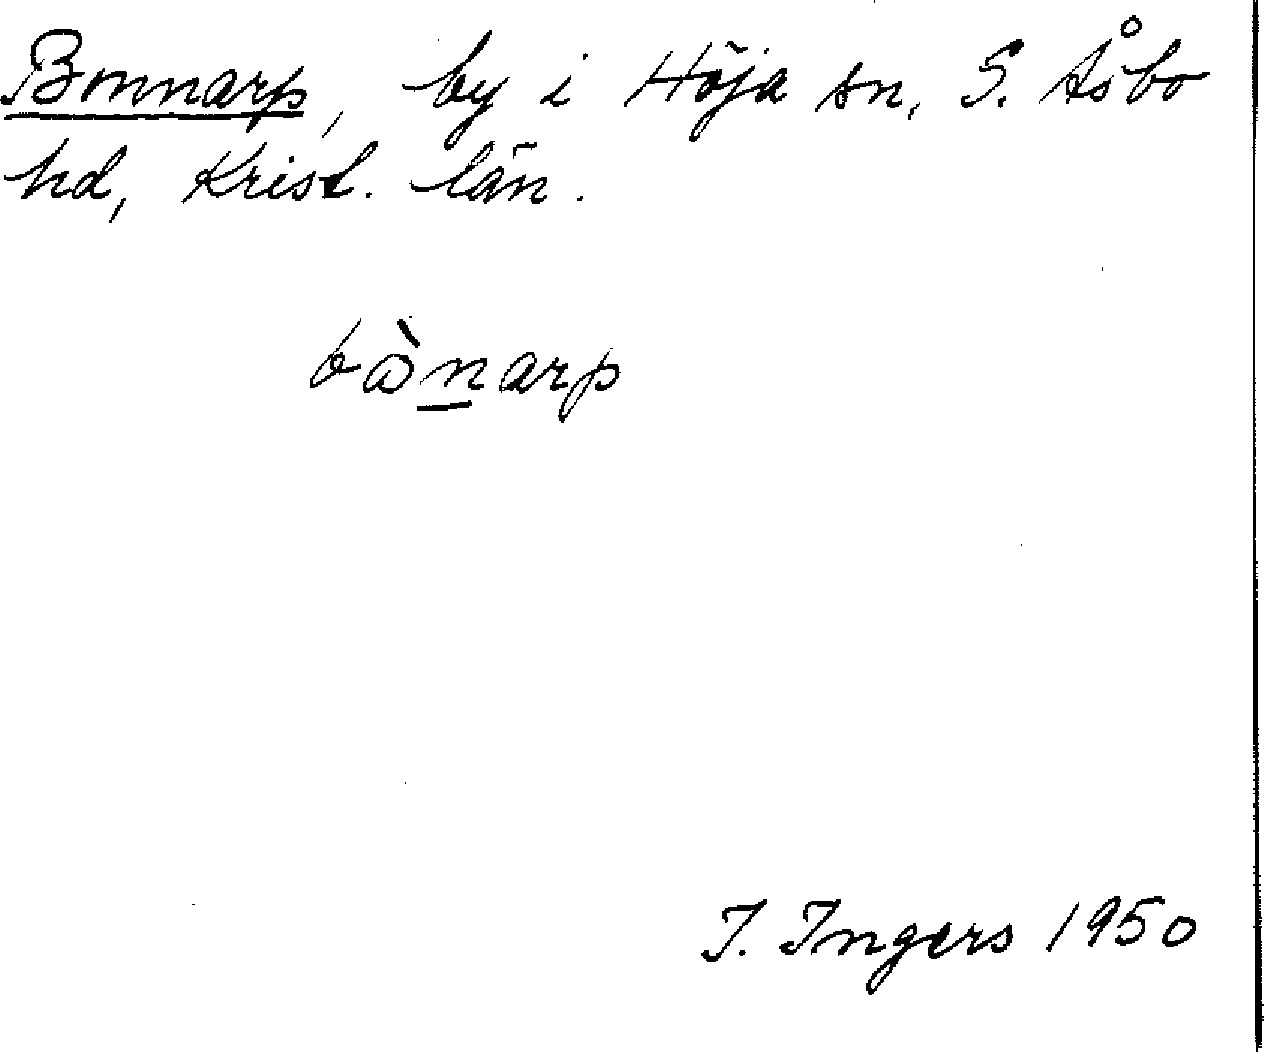 Bonnarp, by i Höja sn, S. Åsbo
hd, Krist. län.
bånarp
I. Ingers 1950